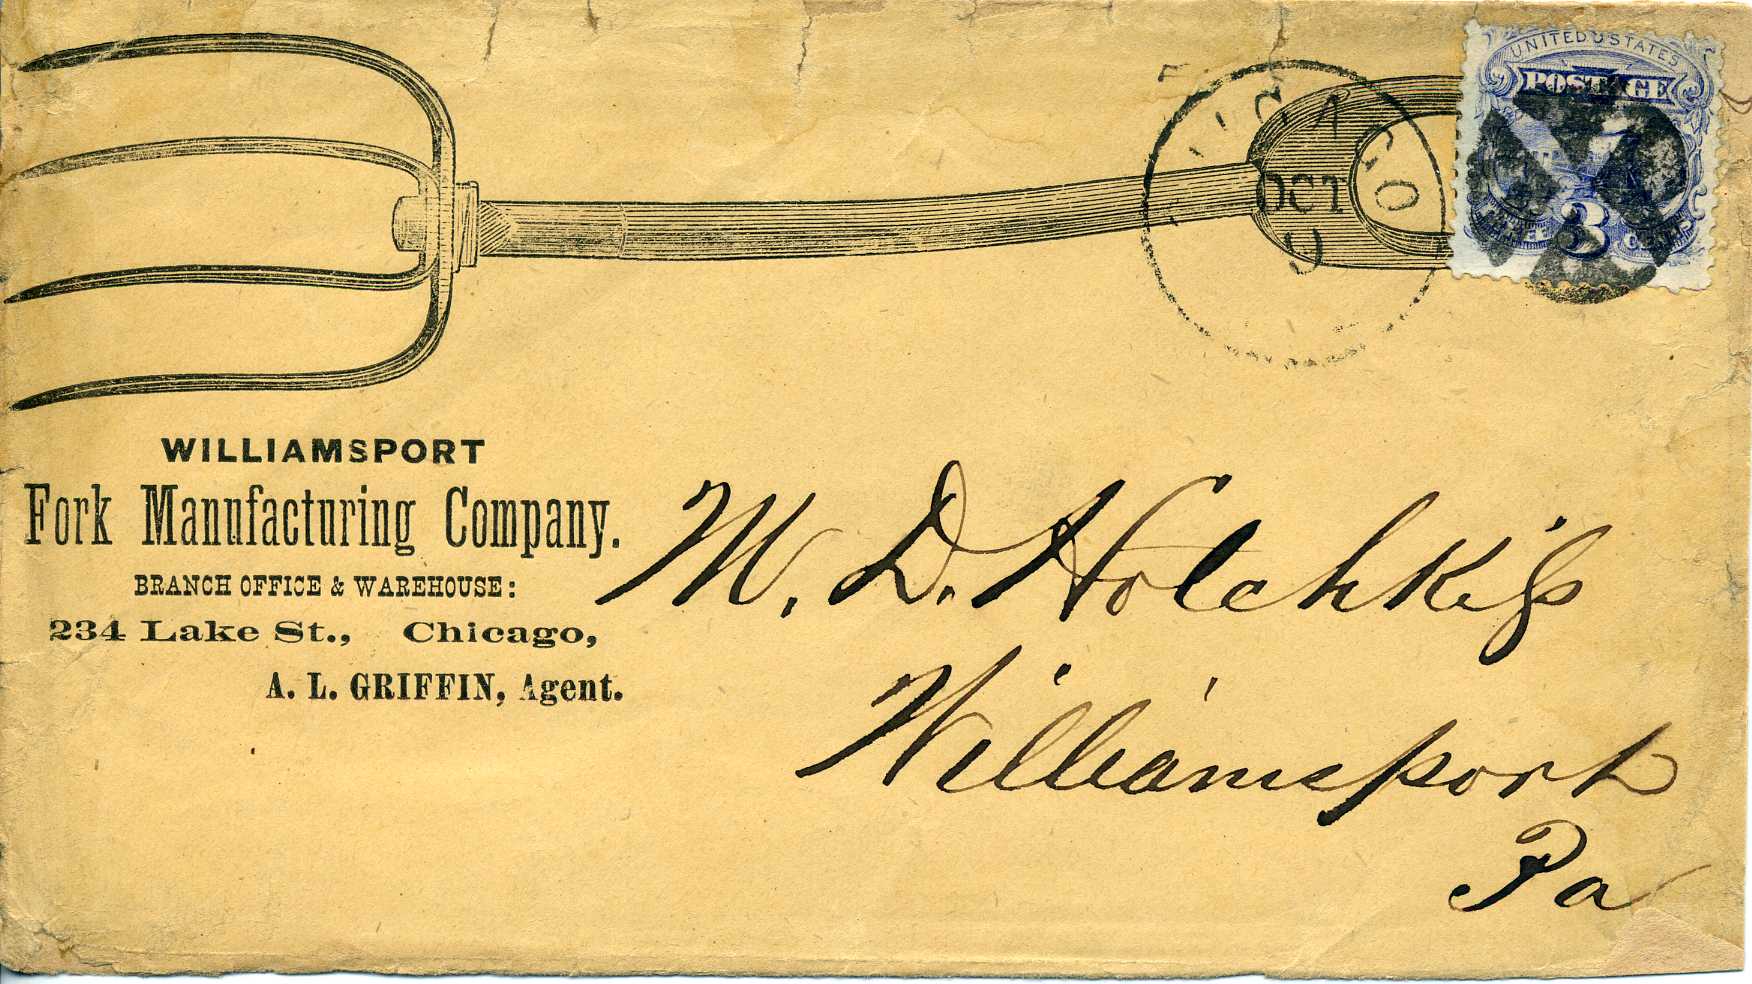 UNITED STATES
POSTAGE
CHICAGO
OCT
3
WILLIAMSPORT
Fork Manufacturing Company.
BRANCH OFFICE & WAREHOUSE:
234 Lake St., Chicago,
A. L. GRIFFIN, Agent.
M. D. Hotchkiss
Williamsport
Pa